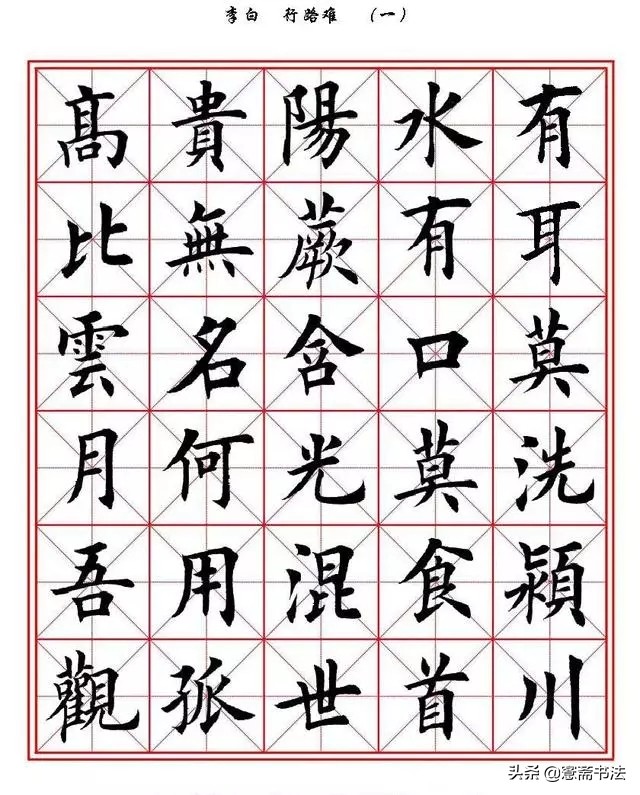 李白 行路难 （一）
有耳莫洗潁川
水有口莫食首
陽蕨含光混世
貴無名何用孤
髙比雲月吾觀
头条 @斋书法